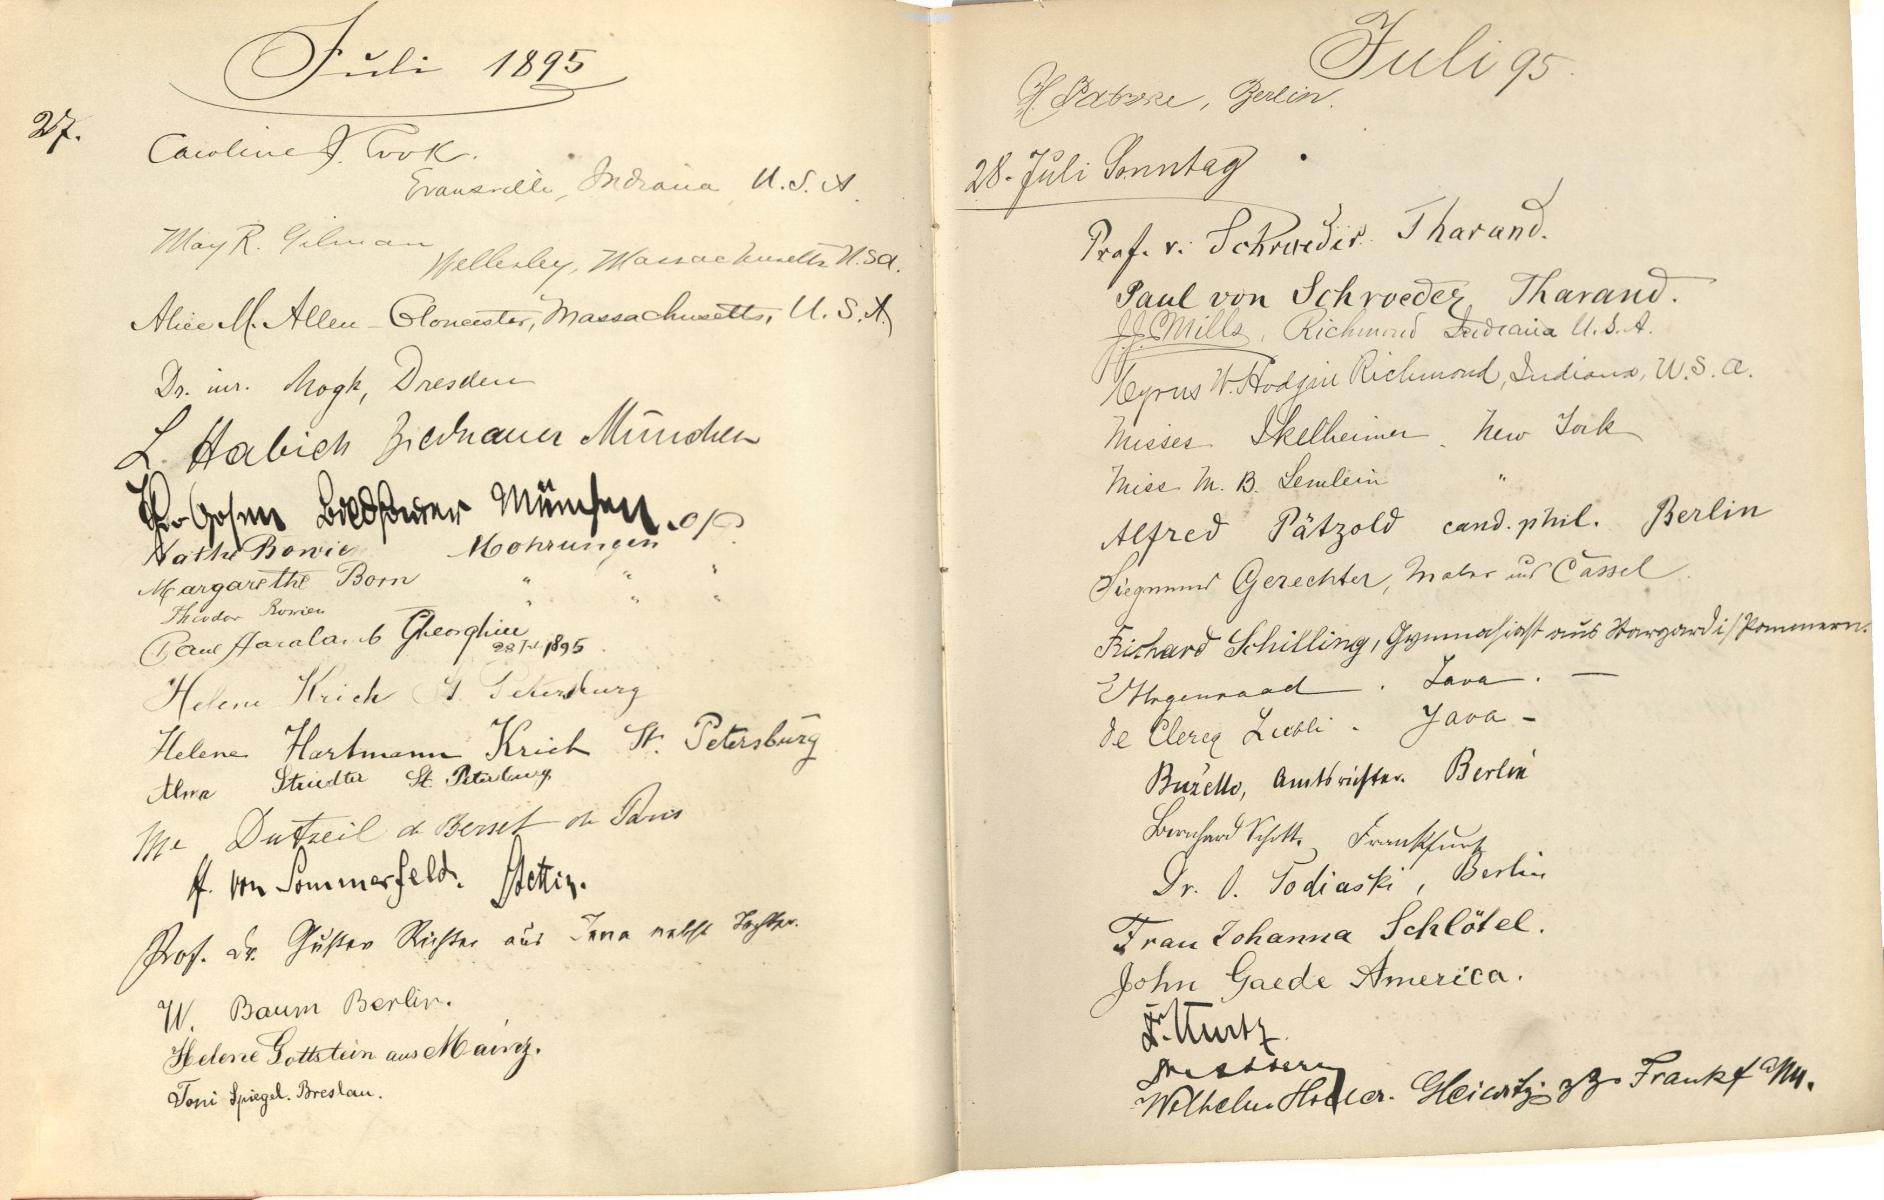 Juli 1895
27.
Caroline J. Cook.
Evansville, Indiana, U. S. A.
May R. Gilman
Wellesley, Massachusetts U.S.A.
Alice M. Allen - Gloucester, Massachusetts, U. S. A.
Dr. iur. Mogk, Dresden
L. Habich Bildhauer München
Theo Gosen Bildhauer München
Käthe Mohrungen o/p
Margarethe Born " " "
Theodor " " "
Paul Gheorghiu
28 Juli 1895
Helene Krich St Petersburg
Helene Hartmann Krich St. Petersburg
Alma St. Petersburg
Me Dutreil de Bernet de Paris
H. von Sommerfeld. Stettin.
Prof. Dr. Gustav Richter aus Jena nebst Tochter.
W. Baum Berlin.
Helene Gottstein aus Mainz.
Toni Spiegel. Breslau.
Juli 95.
H. Patzke, Berlin.
28. Juli Sonntag
Prof. v. Schroeder Tharand.
Paul von Schroeder Tharand.
J.J. Mills, Richmond Indiana U. S. A.
Cyrus W. Hodgin Richmond, Indiana, U. S. A.
Misses Ikelheimer New York
Miss M. B. Semlein "
Alfred Pätzold cand. phil. Berlin
Siegmund Gerechter, Maler aus Cassel
Richard Schilling, Gymnasiast aus Stargard i/Pommern.
Java. —
de Clercq Java -
Buzello, Amtsrichter. Berlin
Bernhard Schott, Frankfurt
Dr. O. Todiaski, Berlin
Frau Johanna Schlötel.
John Gaede America.
Dr. Kurtz
Wilhelm Gleiwitz zZ. Frankf a/M.